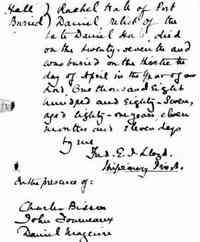 Hall } Rachel Hall of Port
Buried } Daniel, relict of the
late Daniel Hall, died
on the twenty-seventh and
was buried on the thirtieth
day of April in the year of our
Lord, One thousand Eight
hundred and Eighty-Seven,
aged eighty-one years, eleven
months and eleven days
by me
Fred. E. J. Lloyd,
Missionary
In the presence of:
Charles Bisson
John
Daniel Maguire